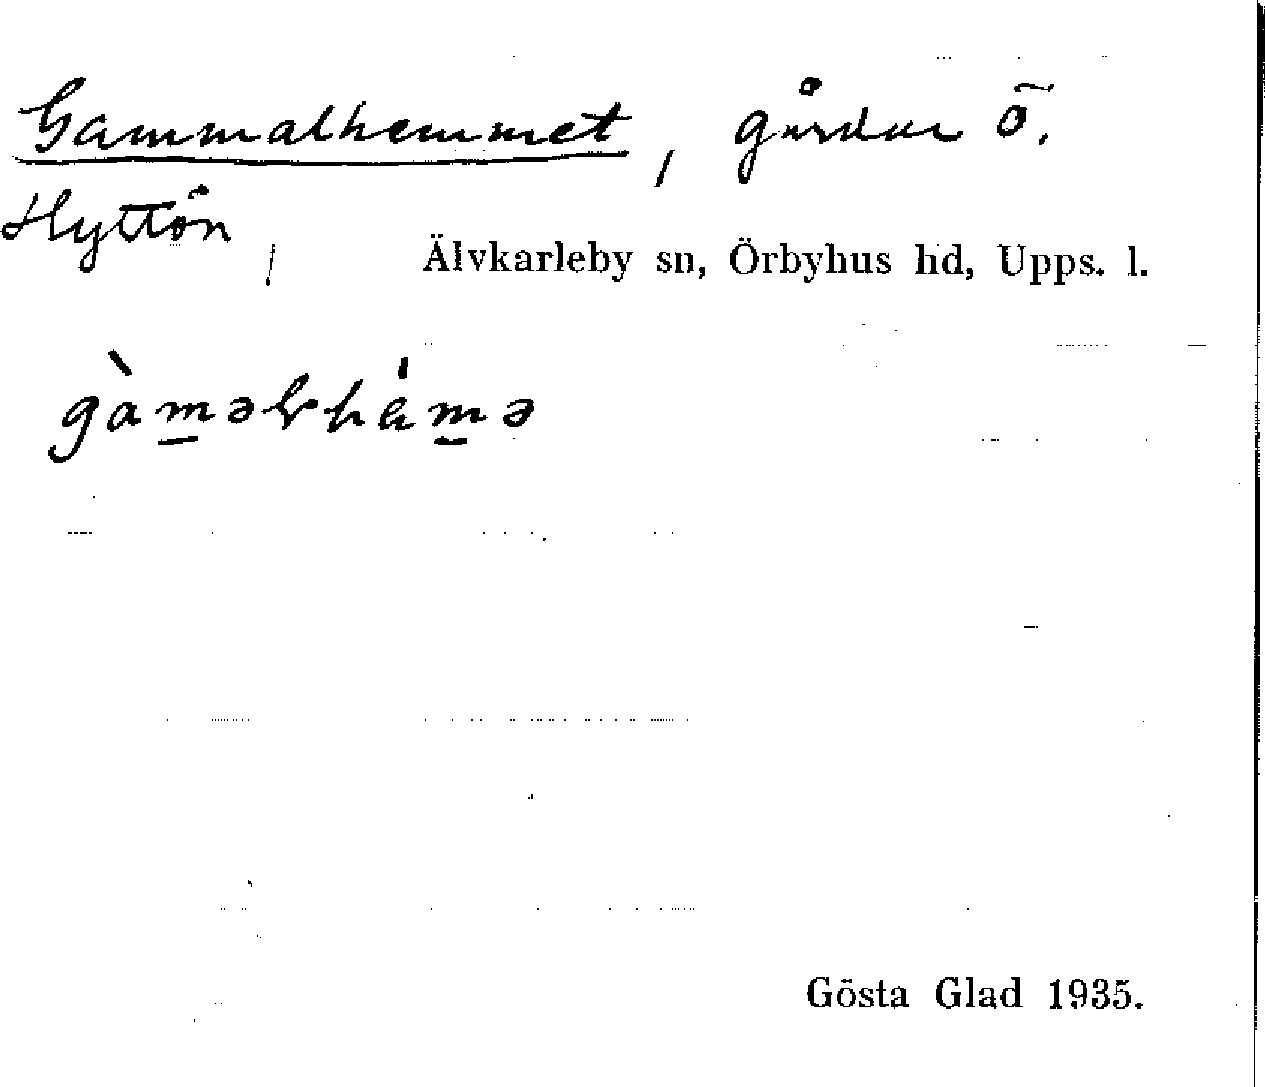 Gammalhemmet, gårdar ö.
Hyttön,
Älvkarleby sn, Örbyhus hd, Upps. l.
Gösta Glad 1935.